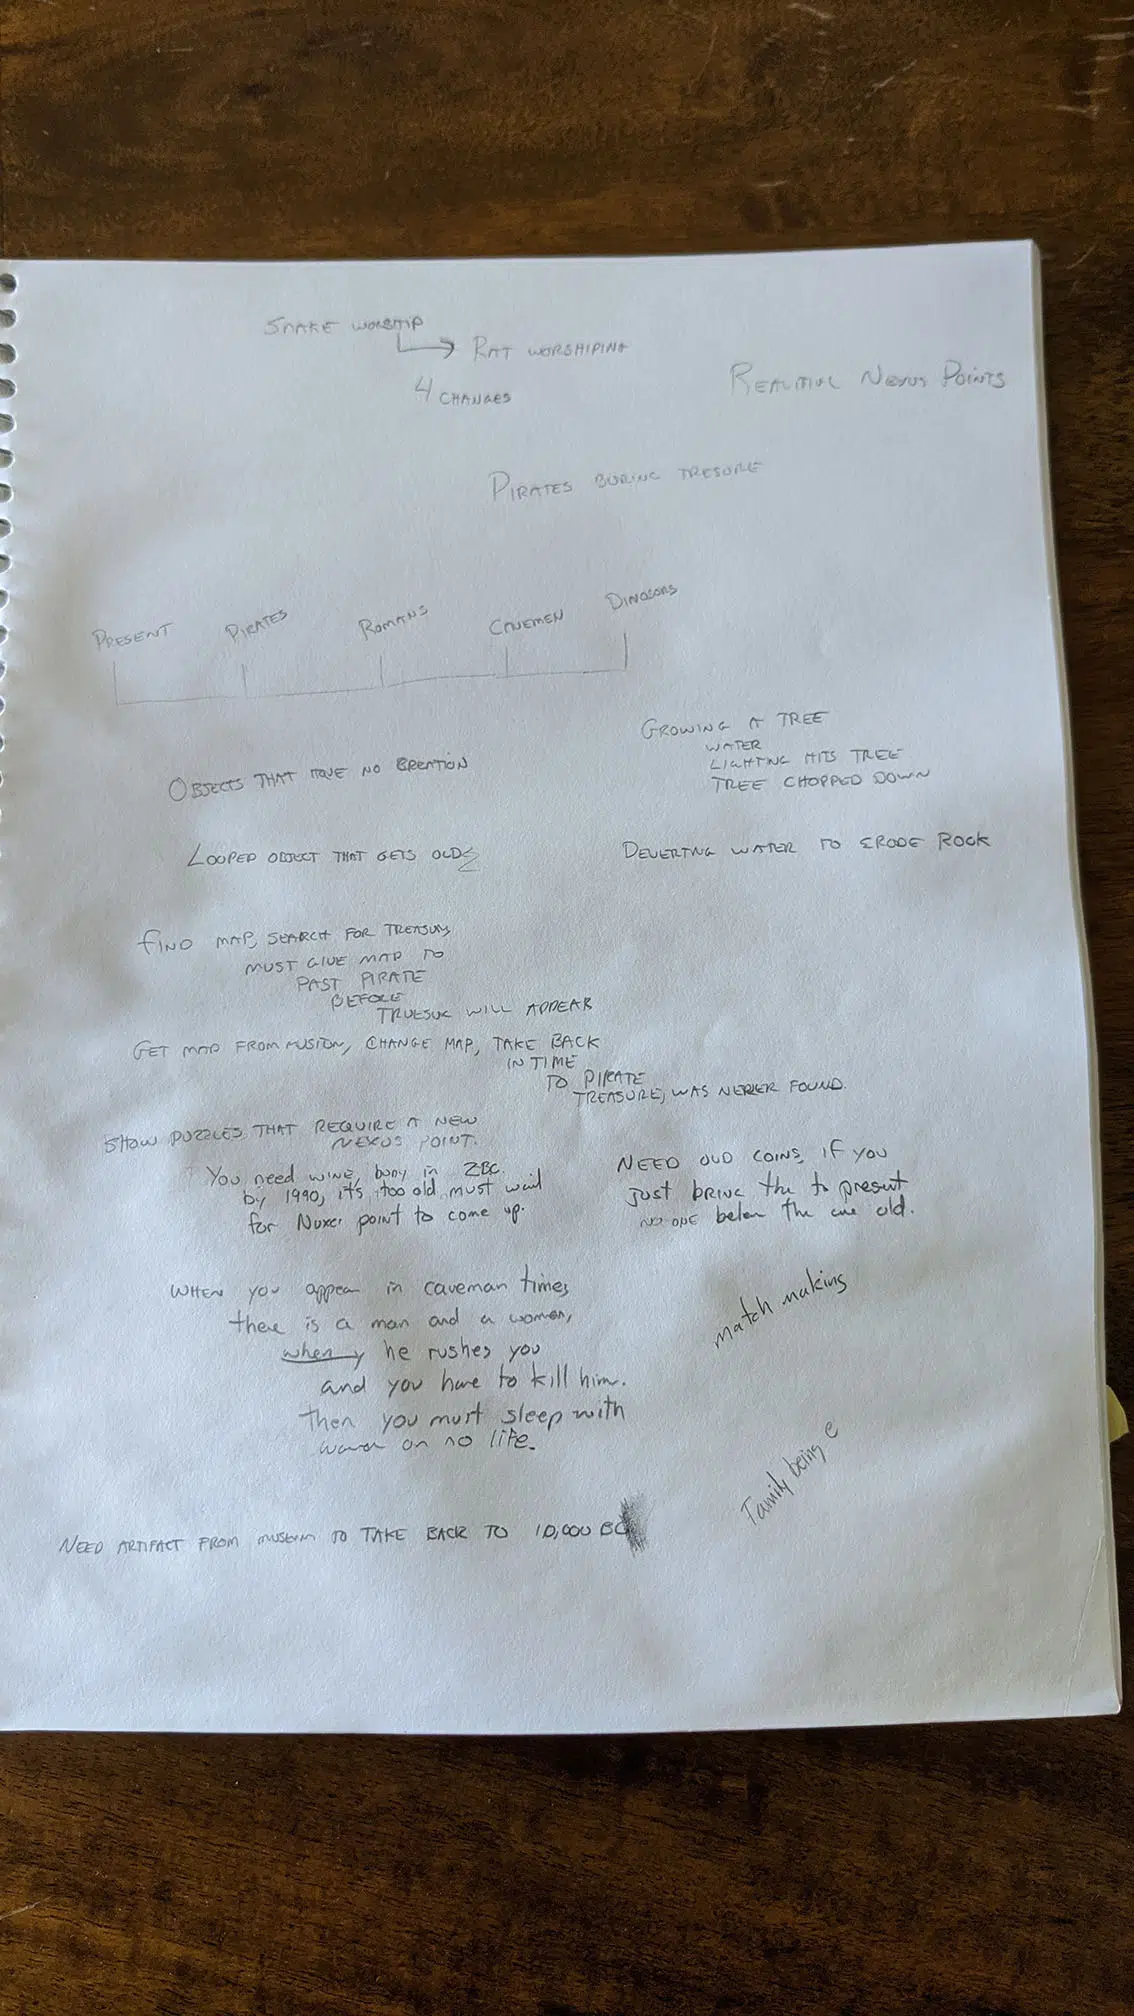 SNAKE WORSHIP
RAT WORSHIPING
4 CHANGES
NEXUS POINTS
PIRATES BURING TRESURE
PRESENT PIRATES ROMANS CAVEMEN DINOSORS
GROWING A TREE
WATER
LIGHTING HITS TREE
TREE CHOPPED DOWN
OBJECTS THAT HAVE NO CREATION
LOOPED OBJECT THAT GETS OLD
DEVERTING WATER TO ERODE ROCK
FIND MAP, SEARCH FOR
MUST GIVE MAP TO
PAST PIRATE
BEFORE
WILL APPEAR
GET MAP FROM MUSIUM, CHANGE MAP, TAKE BACK
IN TIME
TO PIRATE
TREASURE, WAS NEVER FOUND.
SHOW PUZZLES THAT REQUIRE A NEW
NEXUS POINT.
You need wine, bury in 2BC.
by 1990, it's too old, must wait
for point to come up.
NEED OLD COINS, IF YOU
JUST BRING the to present
NO ONE the are old.
WHEN you appear in caveman times
there is a man and a women,
when he rushes you
and you have to kill him.
then you must sleep with
on no life.
match making
Family being e
NEED ARTIFACT FROM MUSEUM TO TAKE BACK TO 10,000 BC